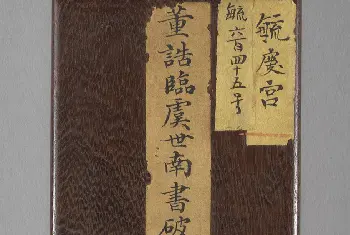 毓慶宮
毓六百四十五号
董誥臨虞世南書破